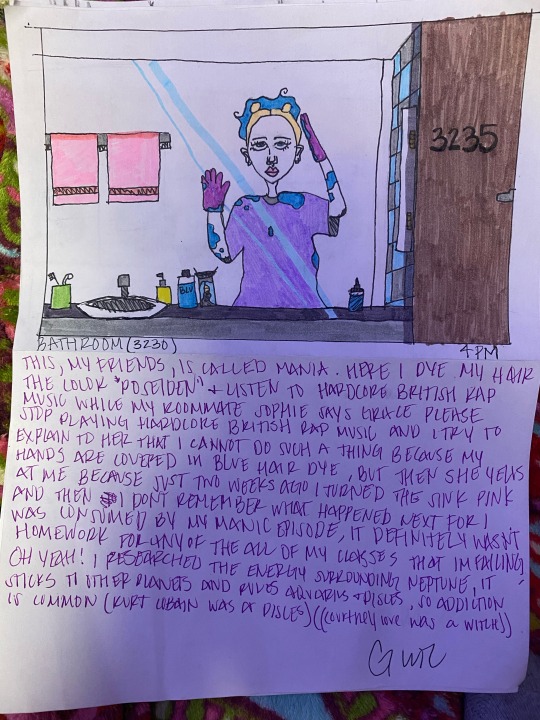 3235
BLU
BATHROOM (3230)
4 PM
THIS, MY FRIENDS, IS CALLED MANIA. HERE I DYE MY HAIR
THE COLOR "POSEIDEN" + LISTEN TO HARDCORE BRITISH RAP
MUSIC WHILE MY ROOMMATE SOPHIE SAYS GRACE PLEASE
STOP PLAYING HARDCORE BRITISH RAP MUSIC AND I TRY TO
EXPLAIN TO HER THAT I CANNOT DO SUCH A THING BECAUSE MY
HANDS ARE COVERED IN BLUE HAIR DYE, BUT THEN SHE YELLS
AT ME BECAUSE JUST TWO WEEKS AGO I TURNED THE SINK PINK
AND THEN I DONT REMEMBER WHAT HAPPENED NEXT FOR I
WAS CONSUMED BY MY MANIC EPISODE, IT DEFINITELY WASN'T
HOMEWORK FOR ANY OF THE ALL OF MY CLASSES THAT IM FAILING,
OH YEAH! I RESEARCHED THE ENERGY SURROUNDING NEPTUNE, IT
STICKS TI OTHER PLANETS AND RULES AQUARIUS + PISCES, SO ADDICTION
IS COMMON (KURT COBAIN WAS A PISCES) ((courtney love was a witch))